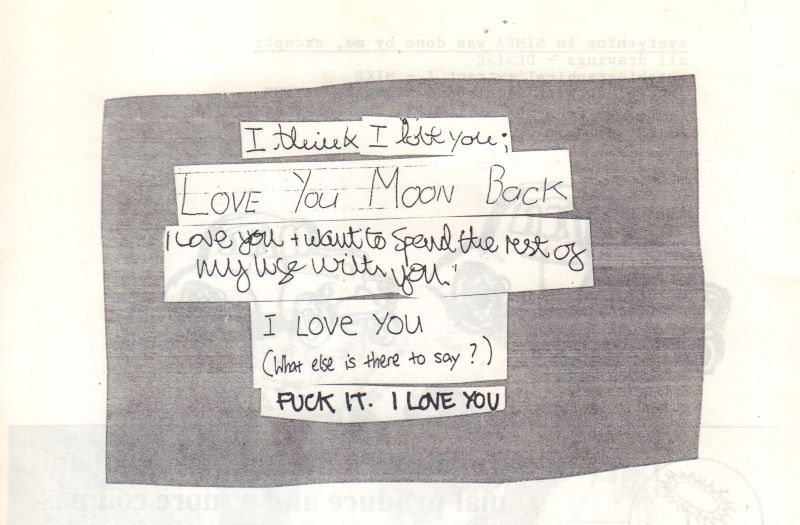 I think I love you;
LOVE YOU MOON BACK
I love you + want to spend the rest of
my life with you."
I LOVE YOU
(What else is there to say?)
FUCK IT. I LOVE YOU
everything in SIMBA was done by me, except:
all drawings - DENISE
mal produce and - more